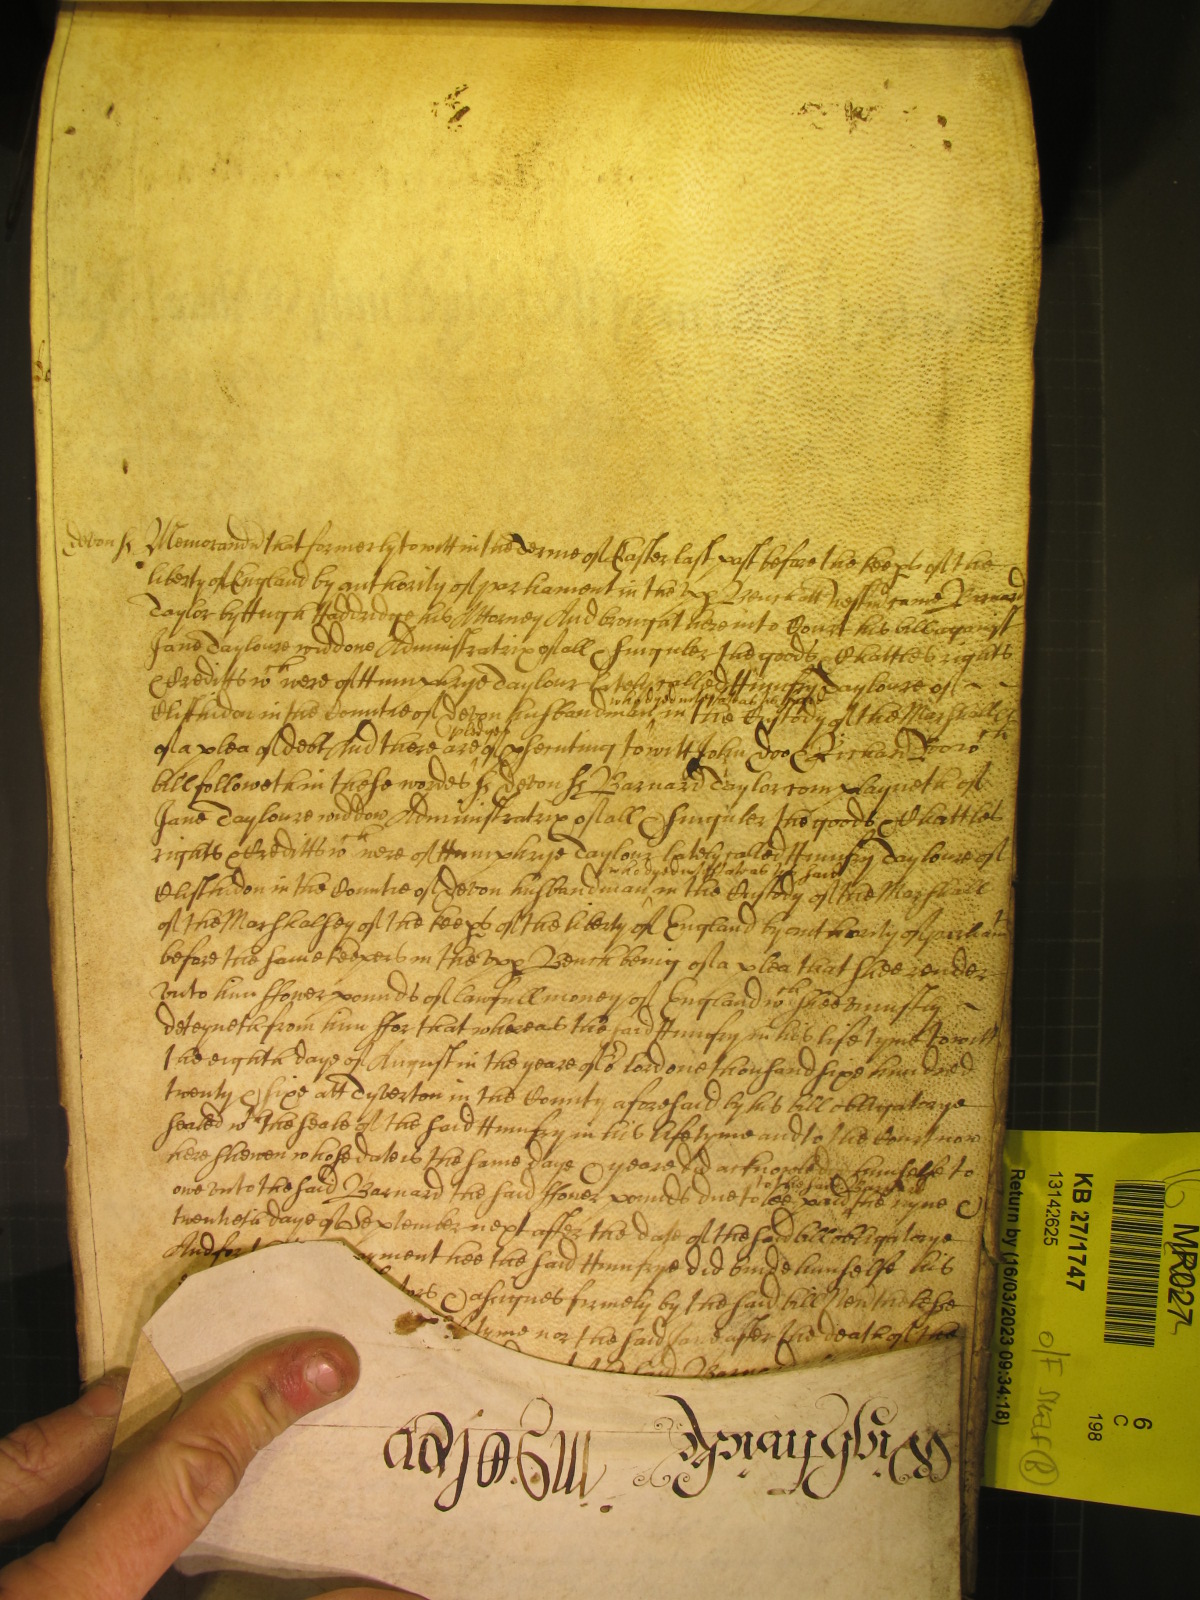 devon ss Memorand that formerly to witt in the Terme of Easter last past before the keeps of the
liberty of England by authority of parliament in the upp Bench att westm came Barnard
Taylor by Hugh his Attorney And brought here into Court his bill against
Jane Tayloure widdowe Administratrix of all & singuler the goods & Chattles rights
& Creditts wch were of Humphrye Taylour lately called Humfry Tayloure of
Clisthidon in the Countie of Devon husbandman who dyed intestate as in the Custody of the Marshall &c
of a plea of debt And there are pledges of psecuting to witt John Doe & Richard Roo wch
bill followeth in these wordes ss devon ss Barnard Taylor complayneth of
Jane Tayloure widdow Administratrix of all & singuler the goods & Chattles
rights & Creditts wch were of Humphrye Taylour lately called Humfry Tayloure of
Clisthidon in the Countie of Devon husbandman who dyed intestate as tis said in the Custody of the Marshall
of the Marshalsey of the keeps of the liberty of England by authority of parliamt
before the same keepers in the upp Bench being of a plea that shee render
unto him ffower pounds of lawfull money of England wch shee uniustly
deteyneth from him ffor that whereas the said Humfry in his life tyme to witt
the eighth daye of August in the yeare of or lord one thousand sixe hundred
twenty & sixe att Tyverton in the County aforesaid by his bill obligatorye
sealed wth the seale of the said Humfry in his life tyme and to the Court now
here shewen whose date is the same daye & yeare did acknowledge himselfe to
owe unto the said Barnard the said ffower pounds due to be paid to the said Barnard the nyne &
twentieth daye of September next after the date of the said bill obligatorye
And for payment hee the said Humfrye did binde himselfe his
& assignes firmely by the said bill Neverthelesse
tyme nor the said Jane after the death of the
said Barnard
KB 27/1747
13142625
Return by (16/03/2023 09:34:18)
MR027
6
C
198